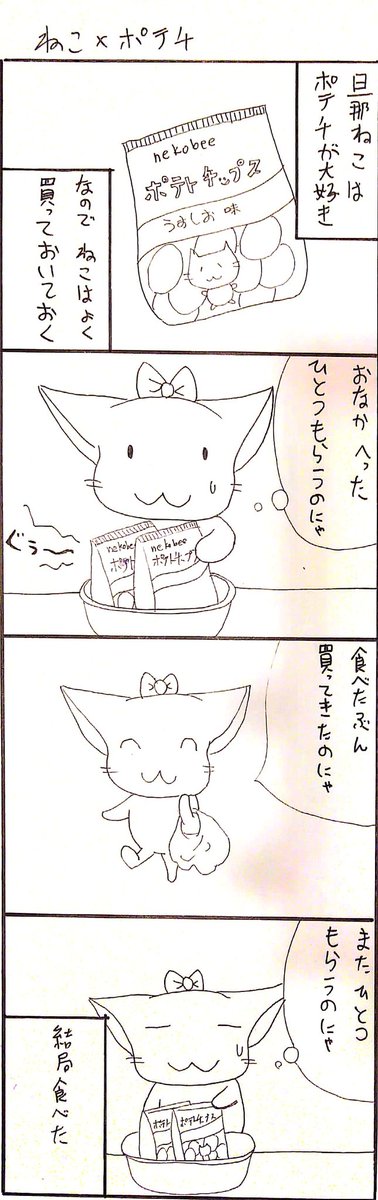 ねこ×ポテチ
旦那ねこは
ポテチが大好き
nekobee
ポテトチップス
うすしお味
なので ねこはよく
買っておいておく
おなか へった
ひとつもらうのにゃ
ぐぅ〜
nekobe
ポテト
nekobee
ポテトチップ
食べたぶん
買ってきたのにゃ
また ひとつ
もらうのにゃ
ポテト
ポテトチップス
結局食べた